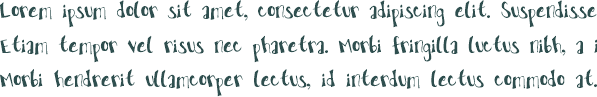 Lorem ipsum dolor sit amet, consectetur adipiscing elit. Suspendisse
Etiam tempor vel risus nec pharetra. Morbi fringilla luctus nibh, a i
Morbi hendrerit ullamcorper lectus, id interdum lectus commodo at.